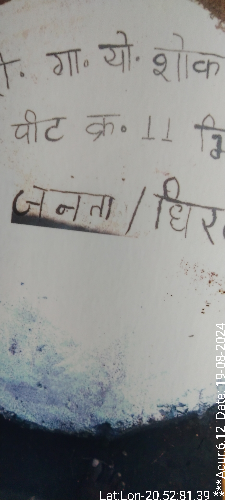 . गा. यो. शोक
पीट क्र. 11
जनता / धिर
Lat:Lon-20.52:81.39
***Acur:6.12, Date: 19-08-2024